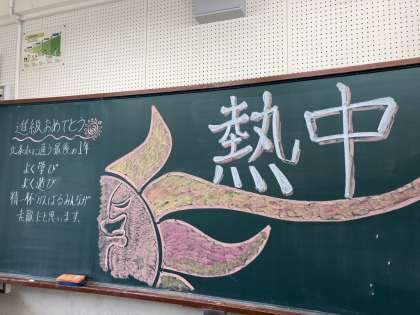 進級おめでとう
に通う最後の1年
よく学び
よく遊び
精一杯がんばるみんなが
素敵だと思います。
熱中